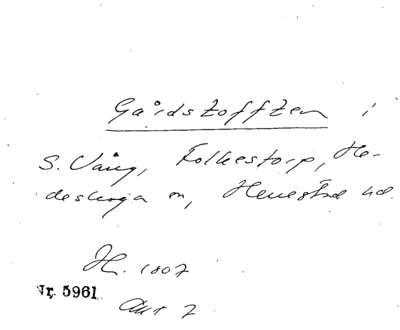 Gårdstofften i
S. Vång, Folkestorp, He-
deskoga sn, Herrestad hd.
H. 1807
Nr. 5961
Akt 7